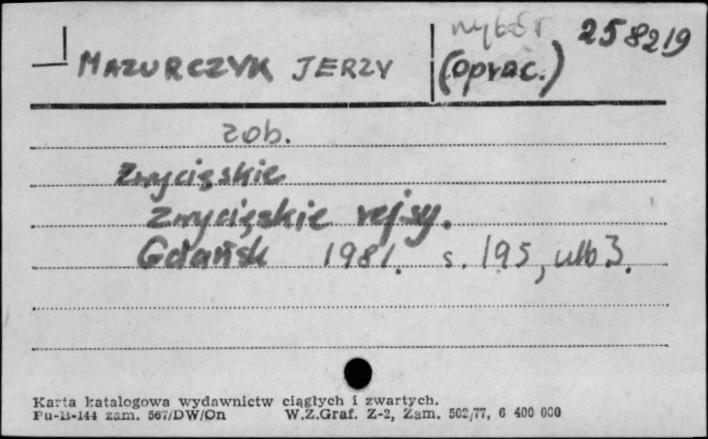 wybór 258219
MAZURCZYK JERZY (oprac.)
zob.
Zwycięskie
Zwycięskie rejsy.
Gdańsk 1981. s. 195, ulb 3.
Karta katalogowa wydawnictw ciągłych i zwartych.
Pu-B-144 zam. 567/DW/On W.Z.Graf. Z-2, Zam. 502/77, 6 400 000